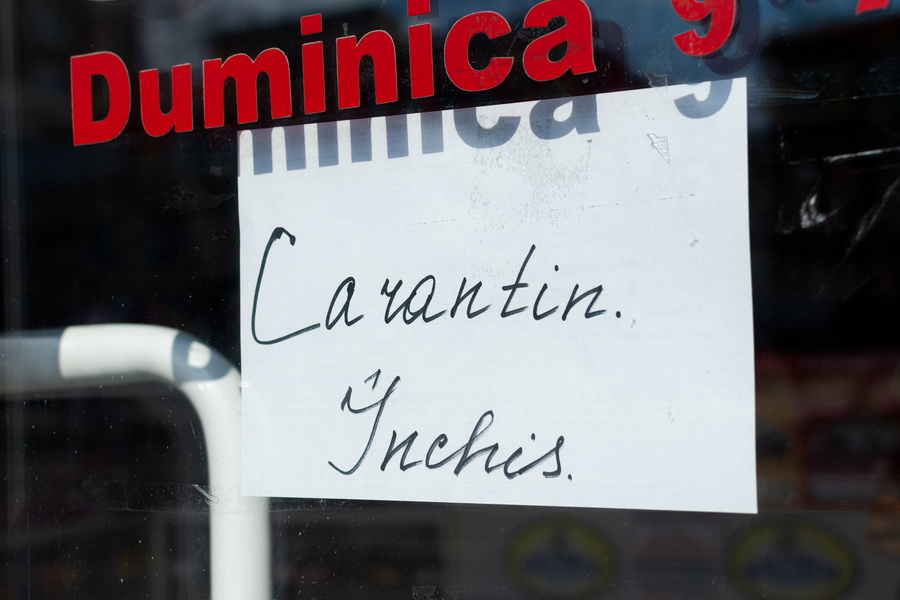 Duminica 9
Carantin.
Închis.